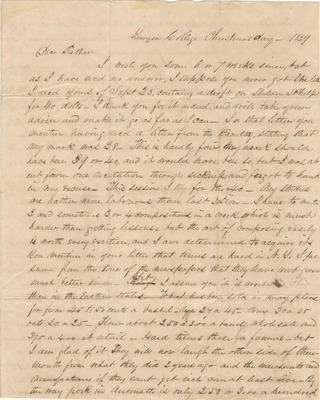 Kenyon College Christmas day - 1839
Dear Father
I wrote you some 6 or 7 weeks since, but
as I have recd no answer, I suppose you never got the letter
I recd yours of Sept 23, containing a draft on Phelps
for 40 dolls - I thank you for it indeed, and will take your
advice and make it go as far as I can - In that letter you
mention having recd a letter from the Faculty, stating that
my mark was 38 - This is hardly fair, they mark should
have been 39 or 40, and it would have been so, but I was ab
sent from one recitation through sickness and forgot to hand
in my excuse - This session I try for the 40 - My studies
are rather more laborious than last session - I have to write
2 and sometimes 3 or 4 compositions in a week which is much
harder than getting lessons, but the art of composing easily
is worth every exertion, and I am determined to acquire it
You mention in your letter that times are hard in N. Y. I pre
sume from the tone of the newspapers that they have not grown
much better since - But I assure you it is worse here
than in the Eastern states - Wheat has been sold in many places
for from 45 to 50 cents a bushel - Rye 37 a 45 Corn 20 a 25
oats 20 a 25 - Flour about 2.50 a 3.00 a barrel wholesale and
3.75 a 4.00 at retail - Hard times these for farmers - but
I am glad of it They will now laugh the other side of their
mouth from what they did 2 years ago and the merchants and
manufacturers if they cant get rich can at least live - By
the way pork in Cincinnati is only 2.50 a 3.00 a hundred